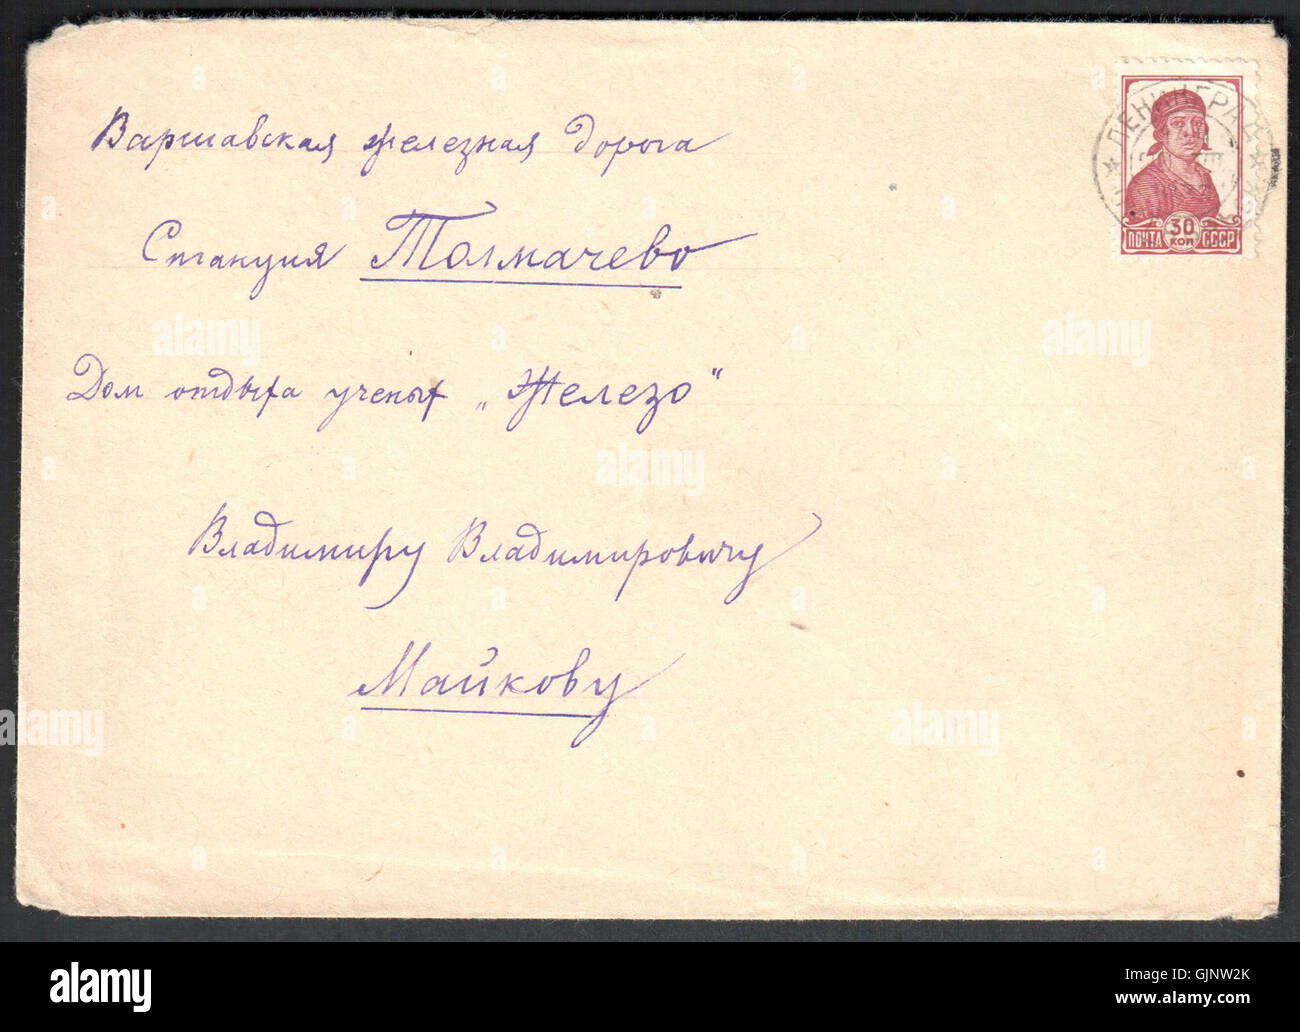 Варшавская железная дорога
Станция Толмачево
Дом отдыха ученых „Железо“
Владимиру Владимировичу
Майкову
ЛЕНИНГРАД
30
КОП
ПОЧТА СССР
alamy
alamy
alamy
alamy
alamy
a alamy stock photo
GJNW2K
www.alamy.com